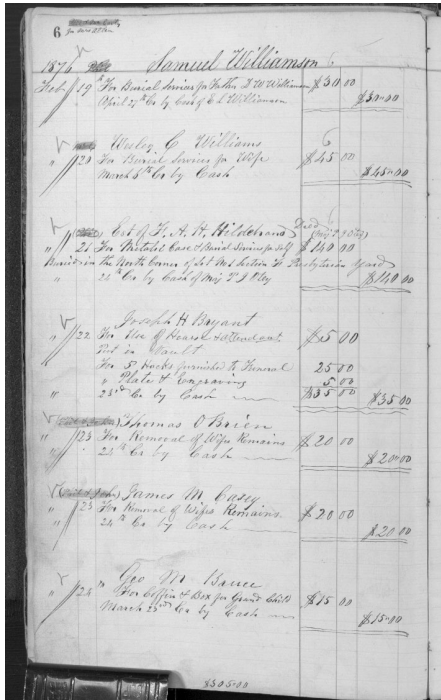 6
1876 Samuel Williamson
Feb 19th For Burial Services for Father D W Williamson $30.00
April 27th Cr by Cash of E L Williamson $30.00
Wesley C Williams
" 20 For Burial Services for Wife $45.00
March 6th Cr by Cash $45.00
Est of H. A. H. Hildebrand Died
" 21 For Metalic Case & Burial Services for self $140.00
Buried in the North Corner of Lot No 1 Section H Presbyterian Yard
" 24th Cr by Cash of Maj T J Oley $140.00
Joseph H Bryant
" 22 For Use of Hearse & Attendant $15.00
Put in Vault
For 5 Hacks furnished to Funeral 25.00
" Plate & Engraving 5.00
" 23rd Cr by Cash $35.00 $35.00
Thomas O'Brien
" 23 For Removal of Wifes Remains $20.00
" 23th Cr by Cash $20.00
James M. Casey
" 23 For Removal of Wifes Remains $20.00
24th Cr by Cash $20.00
Geo M. Bruce
" 24th For Coffin & Box for Grand Child $15.00
March 23rd Cr by Cash $15.00
$305.00